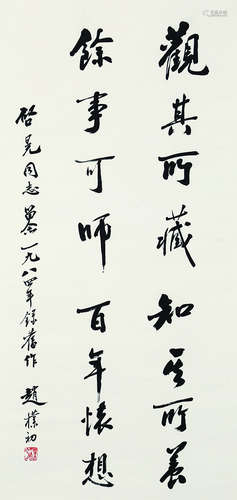 觀其所藏知其所養
餘事可師百年懷想
啓晃同志屬念一九八四年錄舊作 趙樸初